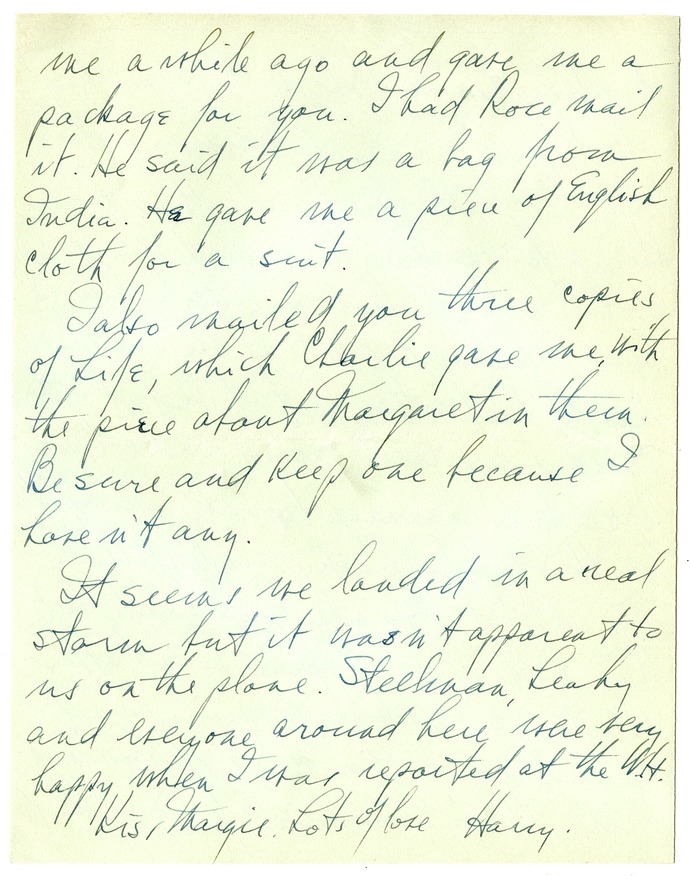 me a while ago and gave me a
package for you. I had Rose mail
it. He said it was a bag from
India. He gave me a piece of English
cloth for a suit.
I also mailed you three copies
of Life, which Charlie gave me, with
the piece about Margaret in them.
Be sure and keep one because I
haven't any.
It seems we landed in a real
storm but it wasn't apparent to
us on the plane. Steelman, Leahy
and everyone around here were very
happy when I was reported at the W.H.
Kiss Margie. Lots of love Harry.